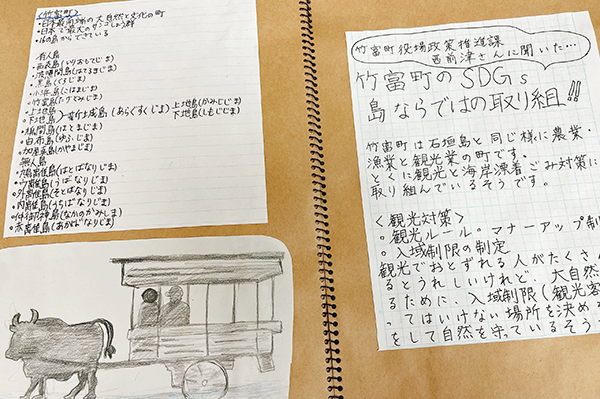 <竹富町>
・日本最南端の大自然と文化の町
・日本で最大のサンゴしょう群
・16の島からできている
有人島
・西表島(いりおもてじま)
・波照間島(はてるまじま)
・黒島(くろしま)
・小浜島(こはまじま)
・竹富島(たけとみじま)
・上地島
・下地島
新城島(あらぐすくじま)
上地島(かみじじま)
下地島(しもじじま)
・鳩間島(はとまじま)
・由布島(ゆふじま)
・加屋真島(かやまじま)
無人島
・鳩離島(はとばなりじま)
・ウ離島(うばなりじま)
・外離島(そとばなりじま)
・内離島(うちばなりじま)
・仲御神島(なかのかみしま)
・赤離島(あかばなりじま)
竹富町役場政策推進課
西前津さんに聞いた…
竹富町のSDGs
島ならではの取り組!!
竹富町は石垣島と同じ様に農業・
漁業と観光業の町です。
とくに観光と海岸漂着ごみ対策に
取り組んでいるそうです。
<観光対策>
・観光ルール・マナーアップ制
・入域制限の制定
観光でおとずれる人がたくさん
るとうれしいけれど、大自然
るために、入域制限(観光客
ってはいけない場所を決める
をして自然を守っているそう